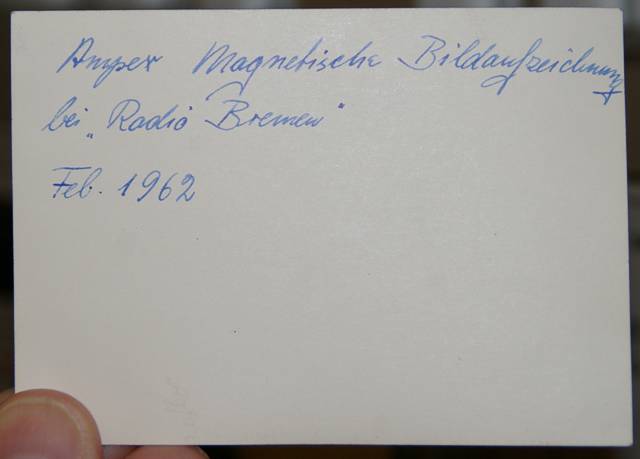 Ampex Magnetische Bildaufzeichnung
bei „Radio Bremen"
Feb. 1962